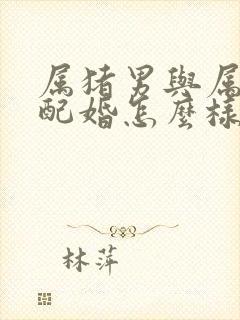 属猪男與属
配婚怎麼樣
林萍